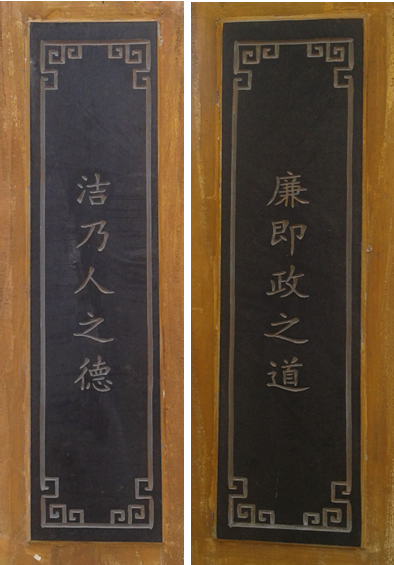 廉即政之道
洁乃人之德